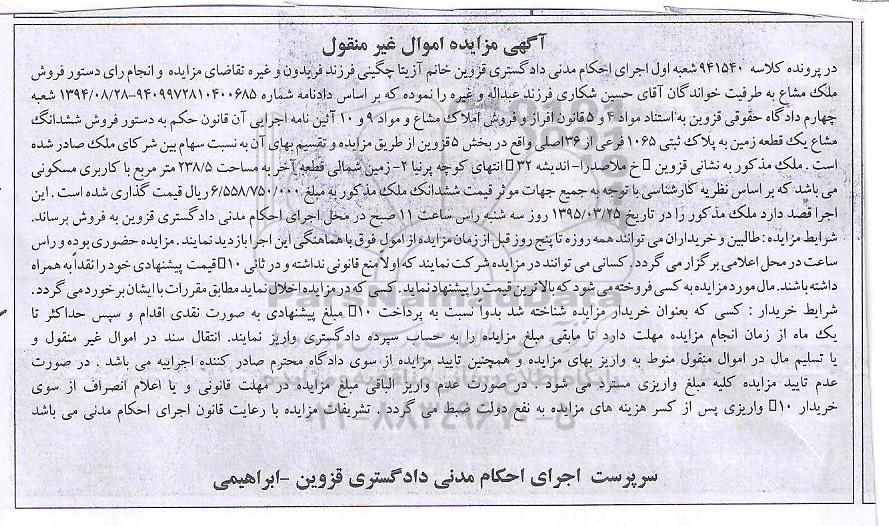 آگهی مزایده اموال غیر منقول
در پرونده کلاسه ۹۴۱۵۴۰ شعبه اول اجرای احکام مدنی دادگستری قزوین خانم آزیتا چگینی فرزند فریدون و غیره تقاضای مزایده و انجام رای دستور فروش
ملک مشاع به طرفیت خواندگان آقای حسین شکاری فرزند عبداله و غیره را نموده که بر اساس دادنامه شماره ۹۴۰۹۹۷۲۸۱۰۴۰۰۶۸۵-۱۳۹۴/۰۸/۲۸ شعبه
چهارم دادگاه حقوقی قزوین به استناد مواد ۴ و ۵ قانون افراز و فروش املاک مشاع و مواد ۹ و ۱۰ آئین نامه اجرایی آن قانون حکم به دستور فروش ششدانگ
مشاع یک قطعه زمین به پلاک ثبتی ۱۰۶۵ فرعی از ۳۶ اصلی واقع در بخش ۵ قزوین از طریق مزایده و تقسیم بهای آن به نسبت سهام بین شرکای ملک صادر شده
است . ملک مذکور به نشانی قزوین □خ ملاصدرا- اندیشه ۳۲□انتهای کوچه پرنیا ۲- زمین شمالی قطعه آخر به مساحت ۲۳۸/۵ متر مربع با کاربری مسکونی
می باشد که بر اساس نظریه کارشناسی با توجه به جمیع جهات موثر قیمت ششدانگ ملک مذکور به مبلغ ۶/۵۵۸/۷۵۰/۰۰۰ ریال قیمت گذاری شده است . این
اجرا قصد دارد ملک مذکور را در تاریخ ۱۳۹۵/۰۳/۲۵ روز سه شنبه راس ساعت ۱۱ صبح در محل اجرای احکام مدنی دادگستری قزوین به فروش برساند.
شرایط مزایده : طالبین و خریداران می توانند همه روزه تا پنج روز قبل از زمان مزایده از امول فوق با هماهنگی این اجرا بازدید نمایند . مزایده حضوری بوده و راس
ساعت در محل اعلامی برگزار می گردد . کسانی می توانند در مزایده شرکت نمایند که اولاً منع قانونی نداشته و در ثانی ۱۰□قیمت پیشنهادی خود را نقداً به همراه
داشته باشند. مال مورد مزایده به کسی فروخته می شود که بالاترین قیمت را پیشنهاد نماید . کسی که در مزایده اخلال نماید مطابق مقررات با ایشان برخورد می گردد .
ParsNamadData
شرایط خریدار : کسی که بعنوان خریدار مزایده شناخته شد بدوا نسبت به پرداخت ۱۰□ مبلغ پیشنهادی به صورت نقدی اقدام و سپس حداکثر تا
یک ماه از زمان انجام مزایده مهلت دارد تا مابقی مبلغ مزایده را به حساب سپرده دادگستری واریز نمایند. انتقال سند در اموال غیر منقول و
یا تسلیم مال در اموال منقول منوط به واریز بهای مزایده و همچنین تایید مزایده از سوی دادگاه محترم صادر کننده اجراییه می باشد . در صورت
عدم تایید مزایده کلیه مبلغ واریزی مسترد می شود . در صورت عدم واریز الباقی مبلغ مزایده در مهلت قانونی و یا اعلام انصراف از سوی
خریدار ۱۰□ واریزی پس از کسر هزینه های مزایده به نفع دولت ضبط می گردد . تشریفات مزایده با رعایت قانون اجرای احکام مدنی می باشد
سرپرست اجرای احکام مدنی دادگستری قزوین -ابراهیمی